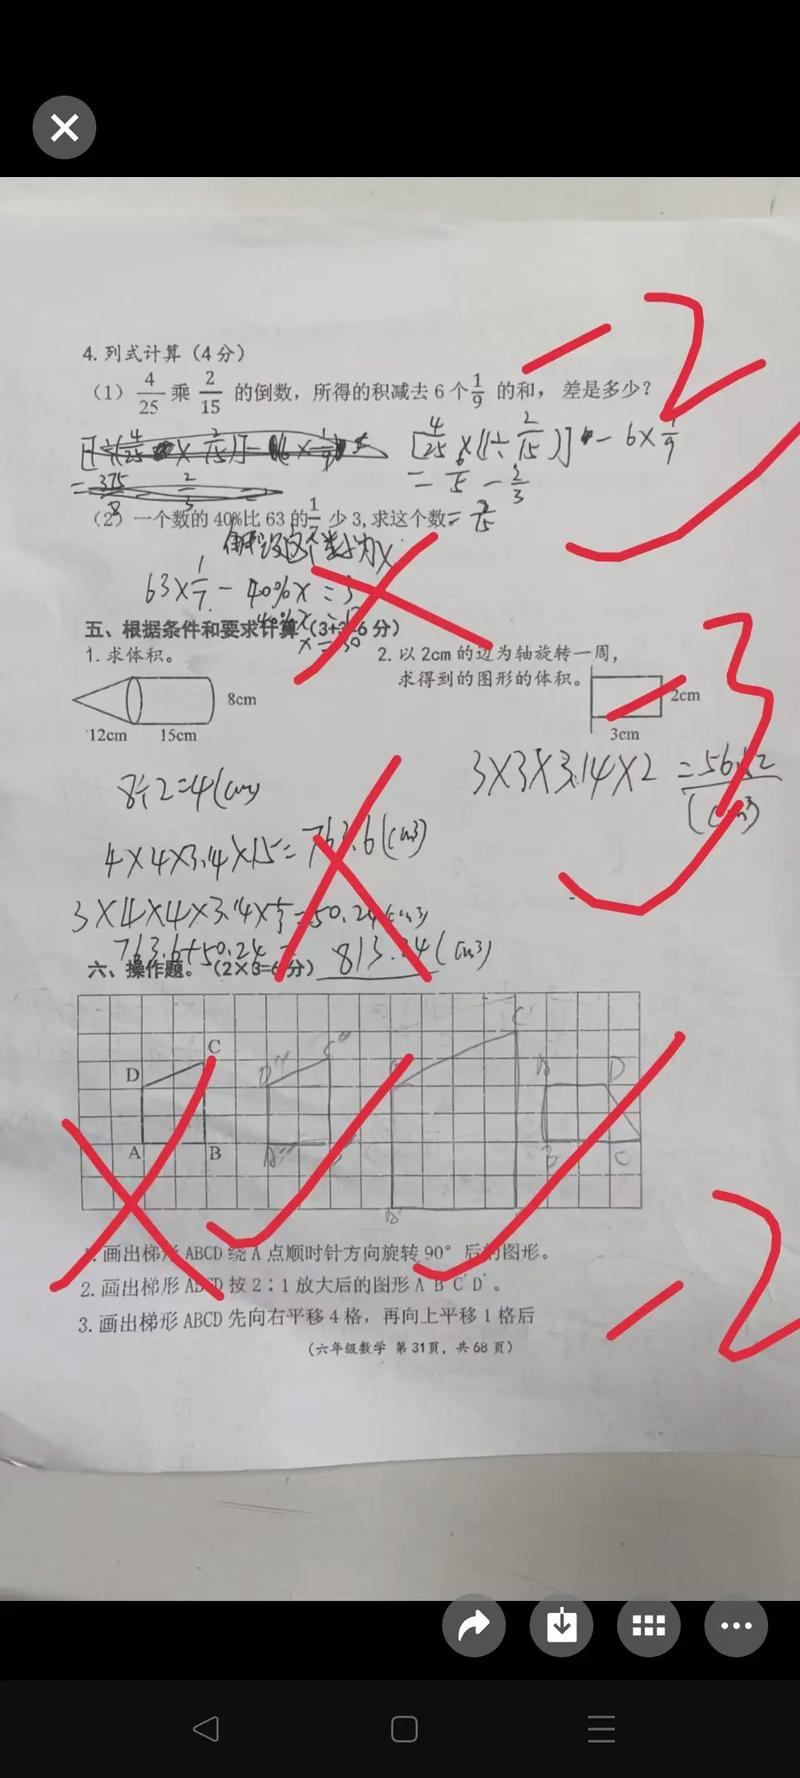 4.列式计算（4分）
（1）4/25乘2/15的倒数，所得的积减去6个1/9的和，差是多少？
-2
[4/25×(1÷2/15)]-6×1/9
=6/5-2/3
（2）一个数的40%比63的1/7少3,求这个数
设这个数为x
63×1/7-40%x=3
五、根据条件和要求计算（3+3=6分）
1.求体积。
8cm
12cm
15cm
2.以2cm的边为轴旋转一周，
求得到的图形的体积。
2cm
3cm
-3
8÷2=4(cm)
3×3×3.14×2=56.52
(cm³)
4×4×3.14×15=763.6(cm³)
3×4×4×3.14×1/3=50.24(cm³)
763.6+50.24=813.84(cm³)
六、操作题。（2×3=6分）
D
C
A
B
D''
C''
A''
C'
D
B
C
1.画出梯形ABCD绕A点顺时针方向旋转90°后的图形。
2.画出梯形ABCD按2：1放大后的图形A'B'C'D'。
3.画出梯形ABCD先向右平移4格，再向上平移1格后
-2
（六年级数学 第31页，共68页）